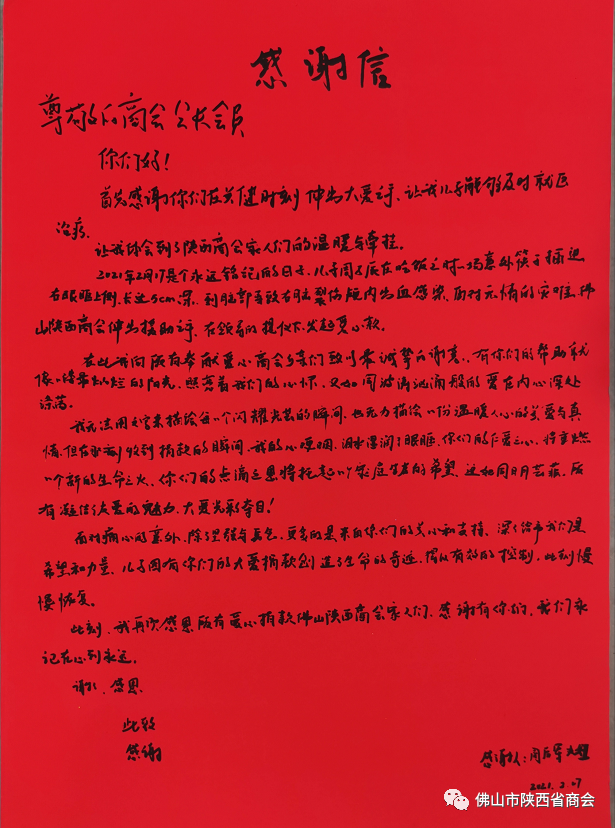 感谢信
尊敬的商会全体会员
你们好！
首先感谢你们在关健时刻伸出大爱之手、让我儿子能够及时就医
治疗、
让我体会到了陕西商会家人们的温暖与牵挂。
2021年2月17是个永远铭记的日子、儿子周后辰在吃饭之时一场意外筷子插进
右眼眶上侧、长达5cm深、到脑部导致右脑裂伤颅内出血感染、面对无情的灾难、佛
山陕西商会伸出援助之手、在领导的提仪下、发起募小款。
在此请向所有奉献爱心商会亲们致以最诚挚的谢意、有你们的帮助就
像一缕带灿烂的阳光、照亮着我们的心怀、又如同波涛汹涌般的爱在内心深处
涤荡。
我无法用文字来描绘每一个闪耀光芒的瞬间、也无力描绘一份温暖人心的关爱与真
情、但在承刷收到捐款的瞬间、我的心哽咽、泪水湿润了眼眶、你们的仁爱之心、将重燃
一个新的生命之火、你们的点滴之恩将托起一个家庭生存的希望、这如同日月芸菽、质
有凝结传爱的魅力、大爱光彩夺目！
面对痛心的意外、除了坚强与勇气、更多的是来自你们的关心和支持、深深给予我们是
希望和力量、儿子因有你们的大爱捐款创造了生命的奇迹、得以有效的控制、此刻慢
慢恢复。
此刻、我再次感恩所有爱心捐款佛山陕西商会家人们、感谢有你们、我们永
记在心到永远。
谢谢、感恩
此致
感谢
感谢人：周后军
2021.3.07
佛山市陕西省商会